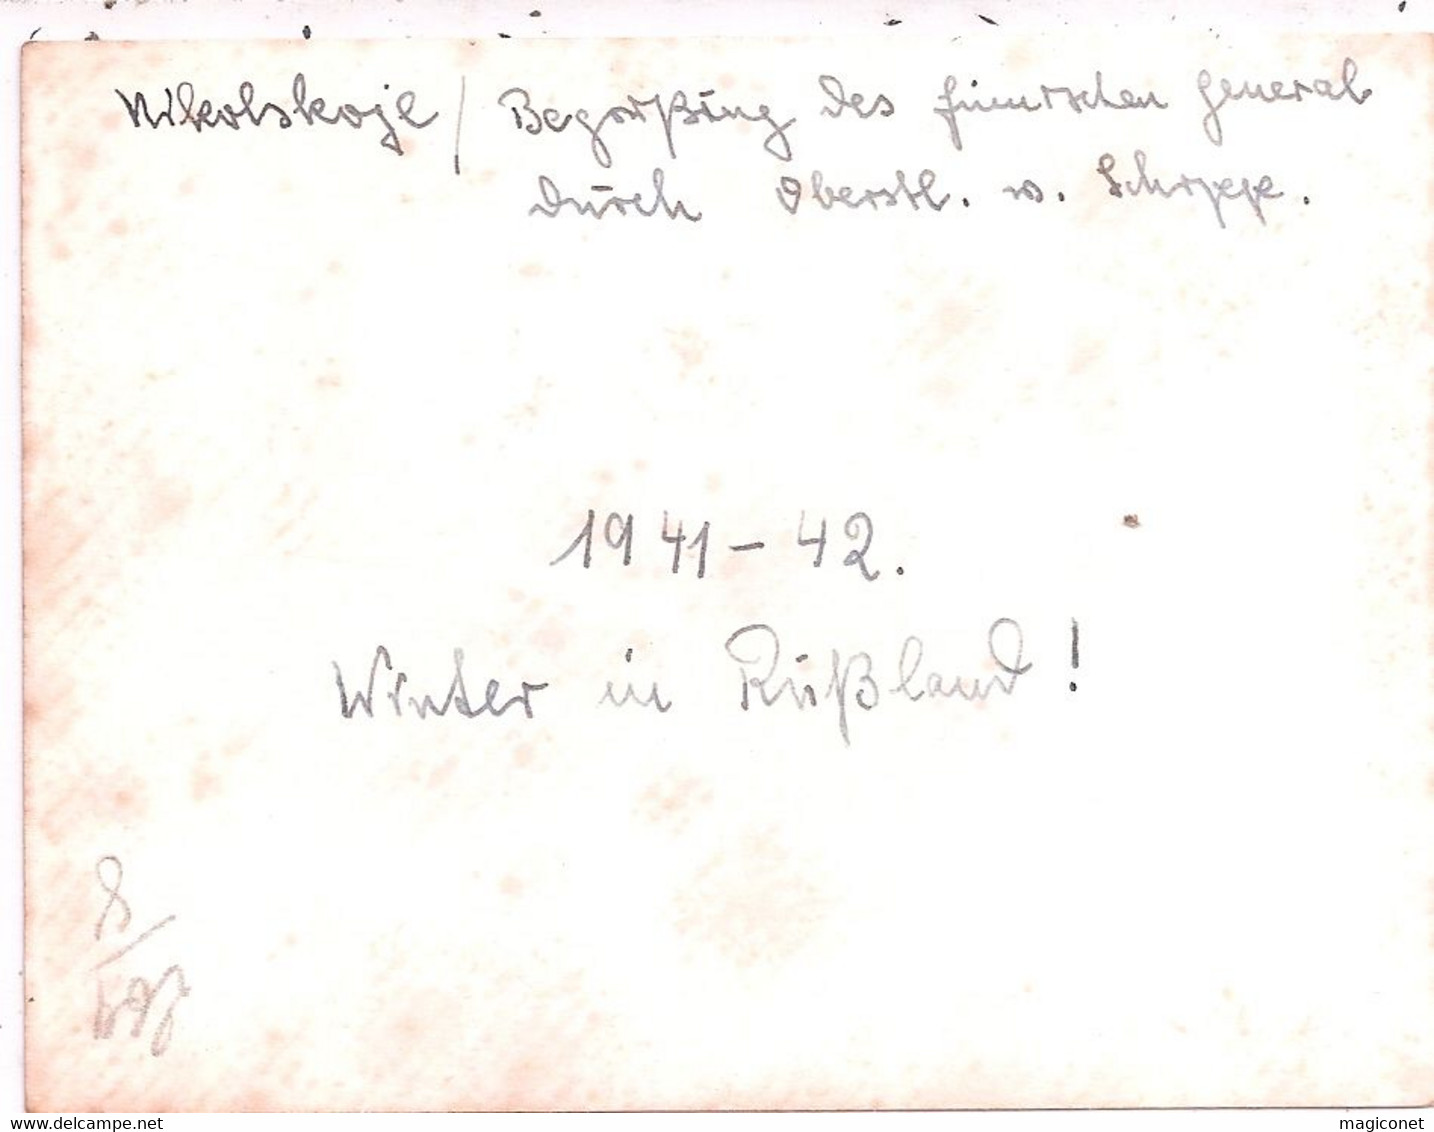 Nikolskoje / Begrüßung des finnischen General
durch Oberstl. v.
1941-42.
Winter in Rußland!
8
delcampe.net
magiconet